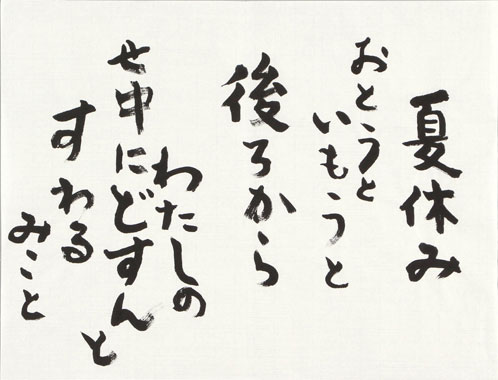 夏休み
おとうと
いもうと
後ろから
わたしの
せ中にどすんと
すわる
みこと